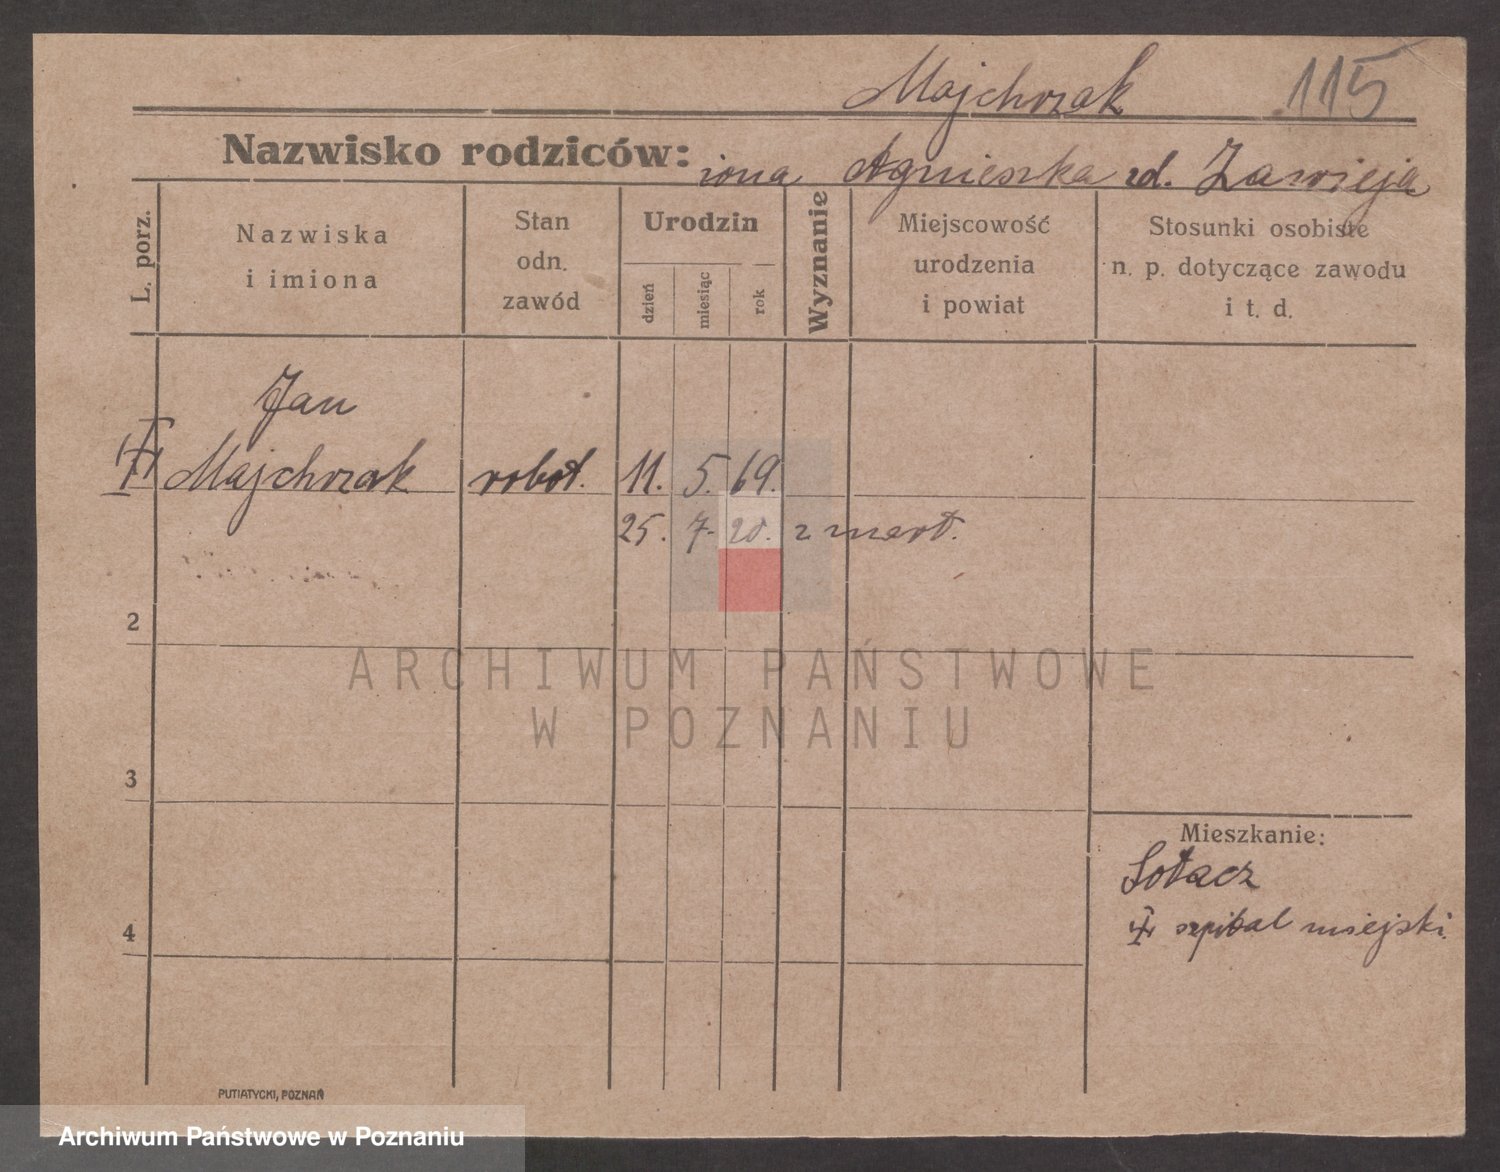 Majchrzak 115
Nazwisko rodziców: żona Agnieszka zd. Zawieja
L. porz.
Nazwiska
i imiona
Stan
odn.
zawód
Urodzin
dzień
miesiąc
rok
Wyznanie
Miejscowość
urodzenia
i powiat
Stosunki osobiste
n. p. dotyczące zawodu
i t. d.
Jan
Majchrzak robot. 11. 5. 69.
25. 7. 20. zmarł.
2
ARCHIWUM PAŃSTWOWE
W POZNANIU
3
Mieszkanie:
Sołacz
szpital miejski.
4
PUTIATYCKI, POZNAŃ
Archiwum Państwowe w Poznaniu